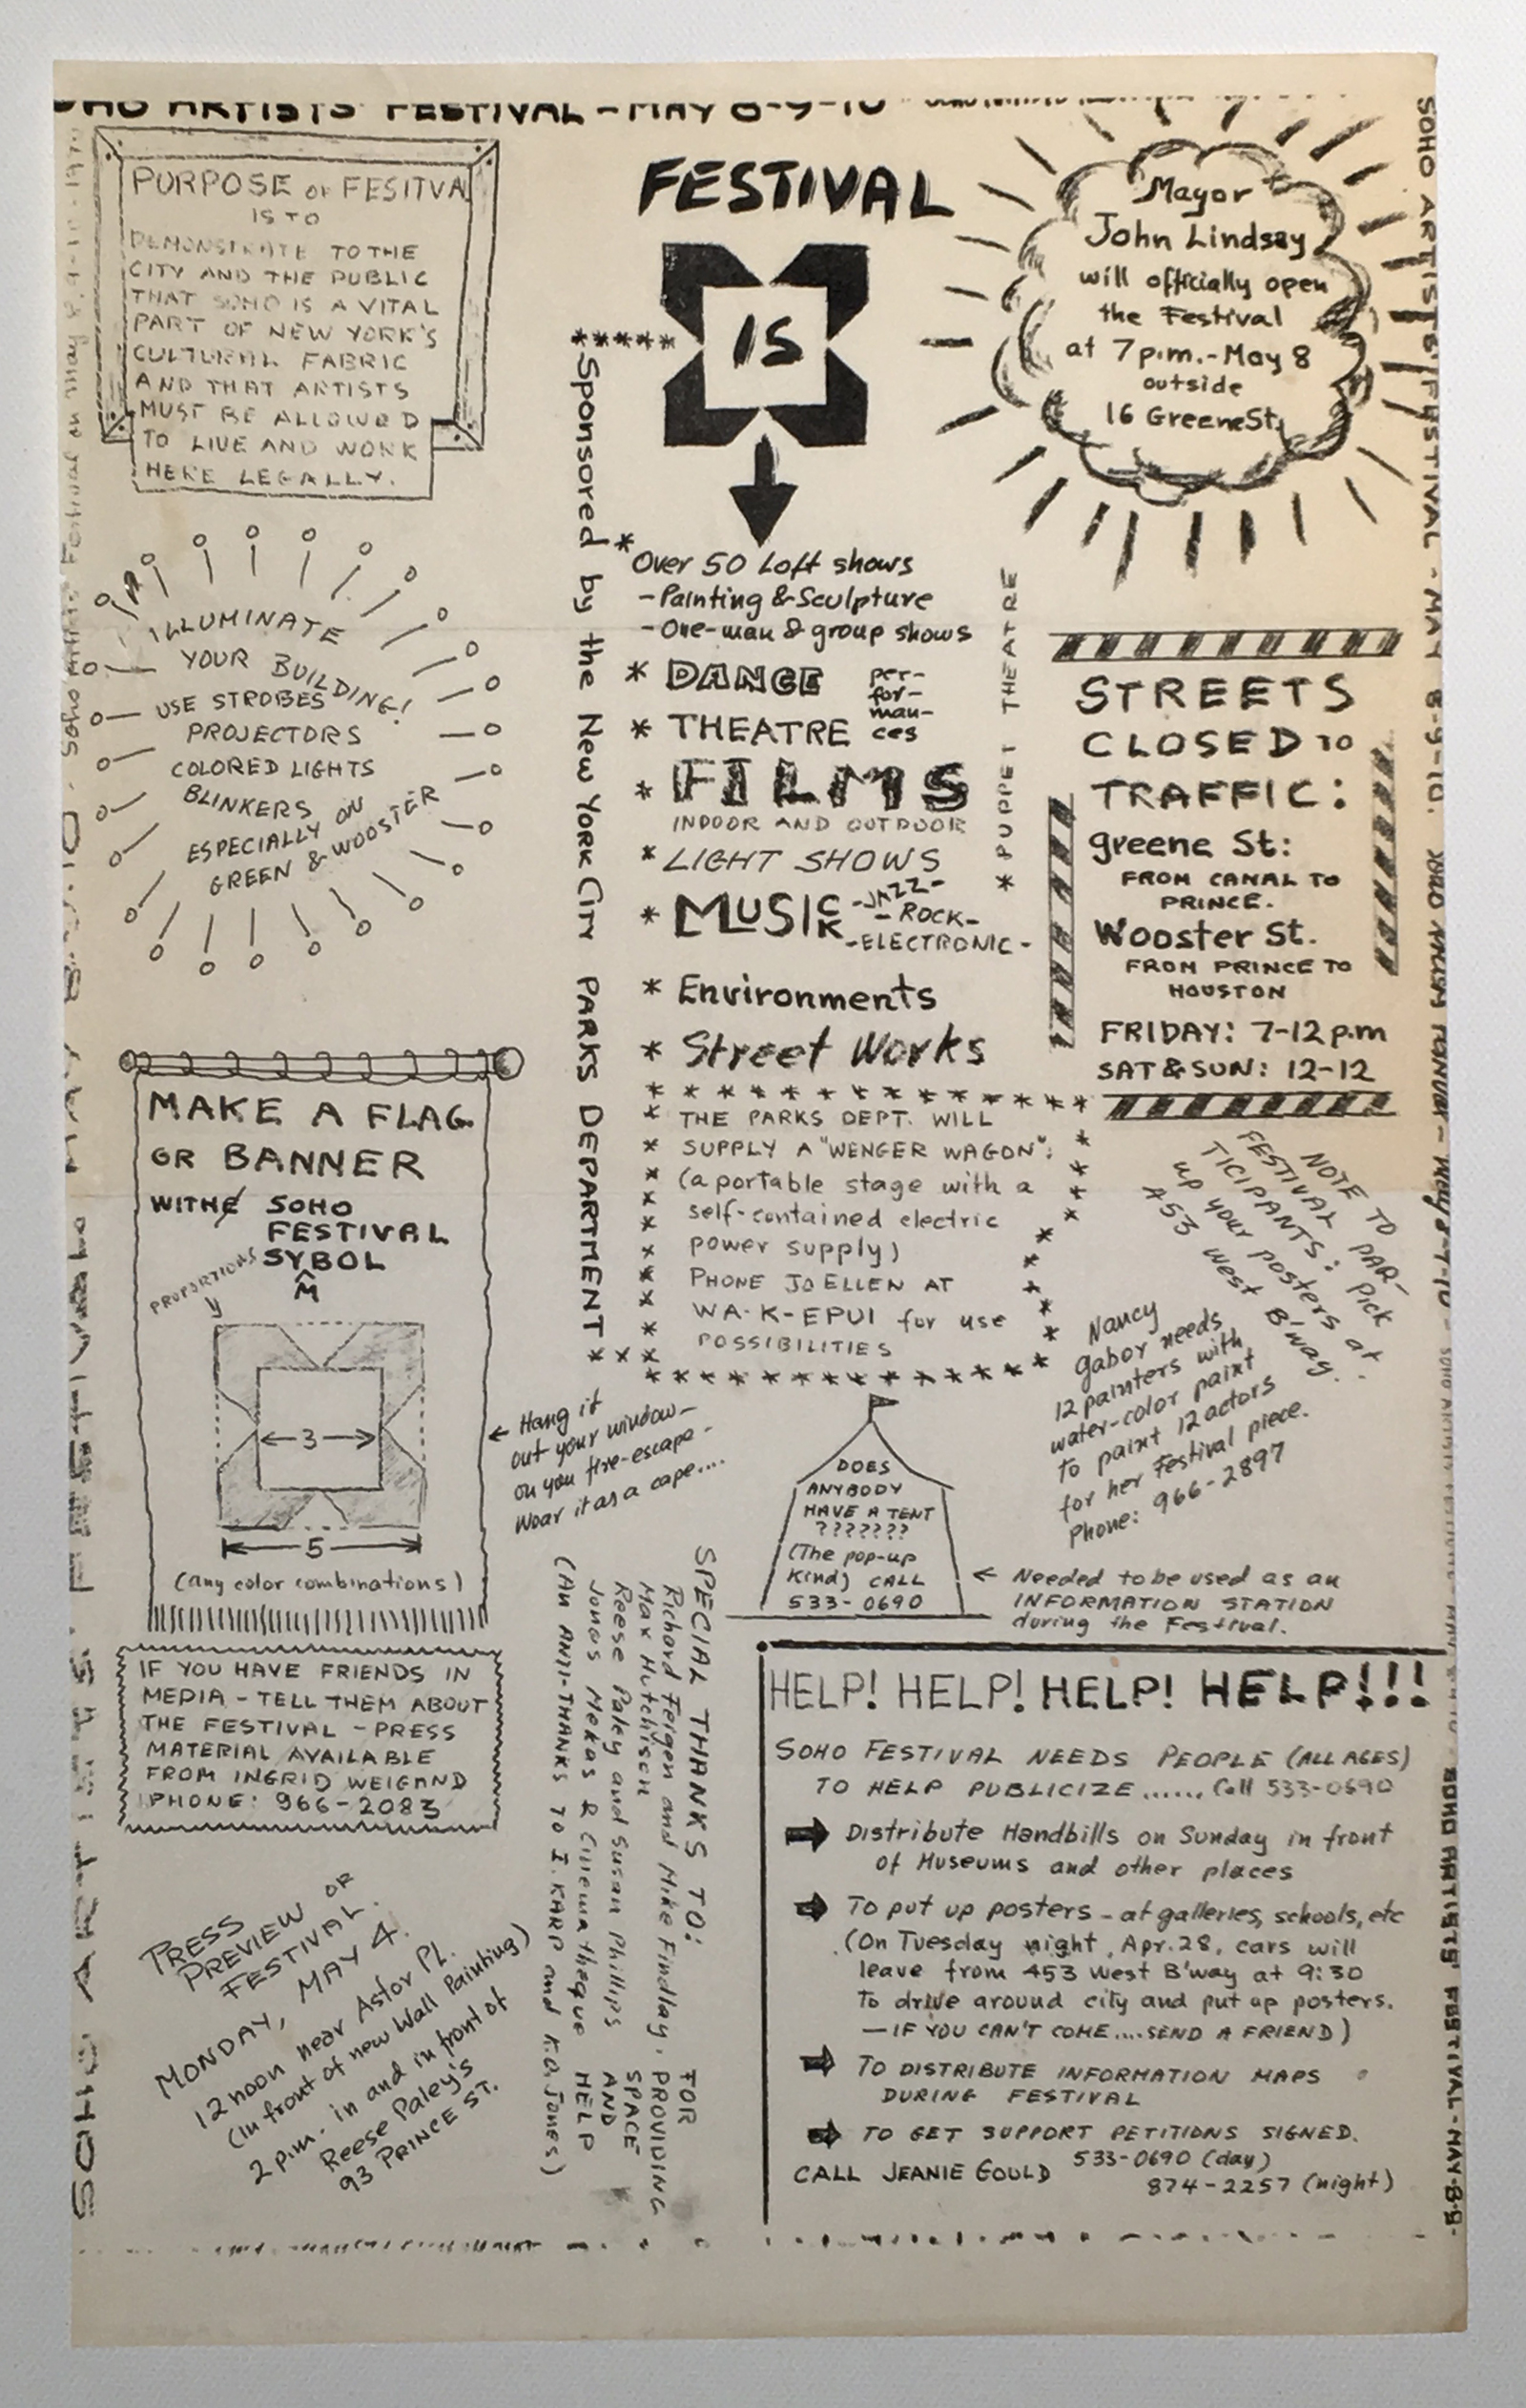 SOHO ARTISTS' FESTIVAL - MAY 8-9-10
PURPOSE OF FESITVA
IS TO
DEMONSTRATE TO THE
CITY AND THE PUBLIC
THAT SOHO IS A VITAL
PART OF NEW YORK'S
CULTURAL FABRIC
AND THAT ARTISTS
MUST BE ALLOWED
TO LIVE AND WORK
HERE LEGALLY.
ILLUMINATE
YOUR BUILDING!
USE STROBES
PROJECTORS
COLORED LIGHTS
BLINKERS
ESPECIALLY ON
GREEN & WOOSTER
MAKE A FLAG
OR BANNER
WITH SOHO
FESTIVAL
SYBOL
M
PROPORTIONS
3
5
(any color combinations)
← Hang it
out your window-
on you fire-escape-
Woar it as a cape....
IF YOU HAVE FRIENDS IN
MEDIA - TELL THEM ABOUT
THE FESTIVAL - PRESS
MATERIAL AVAILABLE
FROM INGRID WEIGAND
PHONE: 966-2083
PRESS
PREVIEW OR
FESTIVAL.
MONDAY, MAY 4.
12 noon near Astor Pl.
(In front of new Wall Painting)
2 p.m. in and in front of
Reese Paley's
93 PRINCE ST.
FESTIVAL
IS
*****Sponsored by the New York City PARKS DEPARTMENT***
*Over 50 Loft shows
-Painting & Sculpture
-One-man & group shows
* DANCE
* THEATRE
per-
for-
man-
ces
* FILMS
INDOOR AND OUTDOOR
* LIGHT SHOWS
* MUSICK -JAZZ-
-ROCK-
-ELECTRONIC-
* Environments
* Street Works
* PUPPET THEATRE
THE PARKS DEPT. WILL
SUPPLY A "WENGER WAGON":
(a portable stage with a
self-contained electric
power supply)
PHONE JO ELLEN AT
WA-K-EPUI for use
POSSIBILITIES
Mayor
John Lindsay
will officially open
the Festival
at 7 p.m.-May 8
outside
16 Greene St.
STREETS
CLOSED TO
TRAFFIC:
greene St:
FROM CANAL TO
PRINCE.
Wooster St.
FROM PRINCE TO
HOUSTON
FRIDAY: 7-12 p.m
SAT & SUN: 12-12
NOTE TO PAR-
FESTIVAL
TICIPANTS: Pick
up your posters at
453 West B'way.
Nancy
gabor needs
12 painters with
water-color paint
to paint 12 actors
for her Festival piece.
Phone: 966-2897
DOES
ANYBODY
HAVE A TENT
???????
(The pop-up
Kind) CALL
533-0690
← Needed to be used as an
INFORMATION STATION
during the Festival.
SPECIAL THANKS TO:
Richard Feigen and Mike Findlay,
Max Hutchison
Reese Paley and Susan Phillips
Jonas Mekas & Cinematheque
FOR
PROVIDING
SPACE
AND
HELP
(AN ANTI-THANKS TO I. KARP and K.O. Jones)
HELP! HELP! HELP! HELP!!!
SOHO FESTIVAL NEEDS PEOPLE (ALL AGES)
TO HELP PUBLICIZE...... Call 533-0690
Distribute Handbills on Sunday in front
of Museums and other places
To put up posters - at galleries, schools, etc
(On Tuesday night, Apr. 28, cars will
leave from 453 West B'way at 9:30
To drive around city and put up posters.
—IF YOU CAN'T COME....SEND A FRIEND)
TO DISTRIBUTE INFORMATION MAPS
DURING FESTIVAL
TO GET SUPPORT PETITIONS SIGNED.
CALL JEANIE GOULD 533-0690 (day)
874-2257 (night)
SOHO ARTISTS' FESTIVAL - MAY 8-9-10.
SOHO ARTISTS' FESTIVAL - MAY-8-9-
SOHO ARTISTS' FESTIVAL MAY 8.9.10. Soho Artists Festival on May 8,9-10-1970